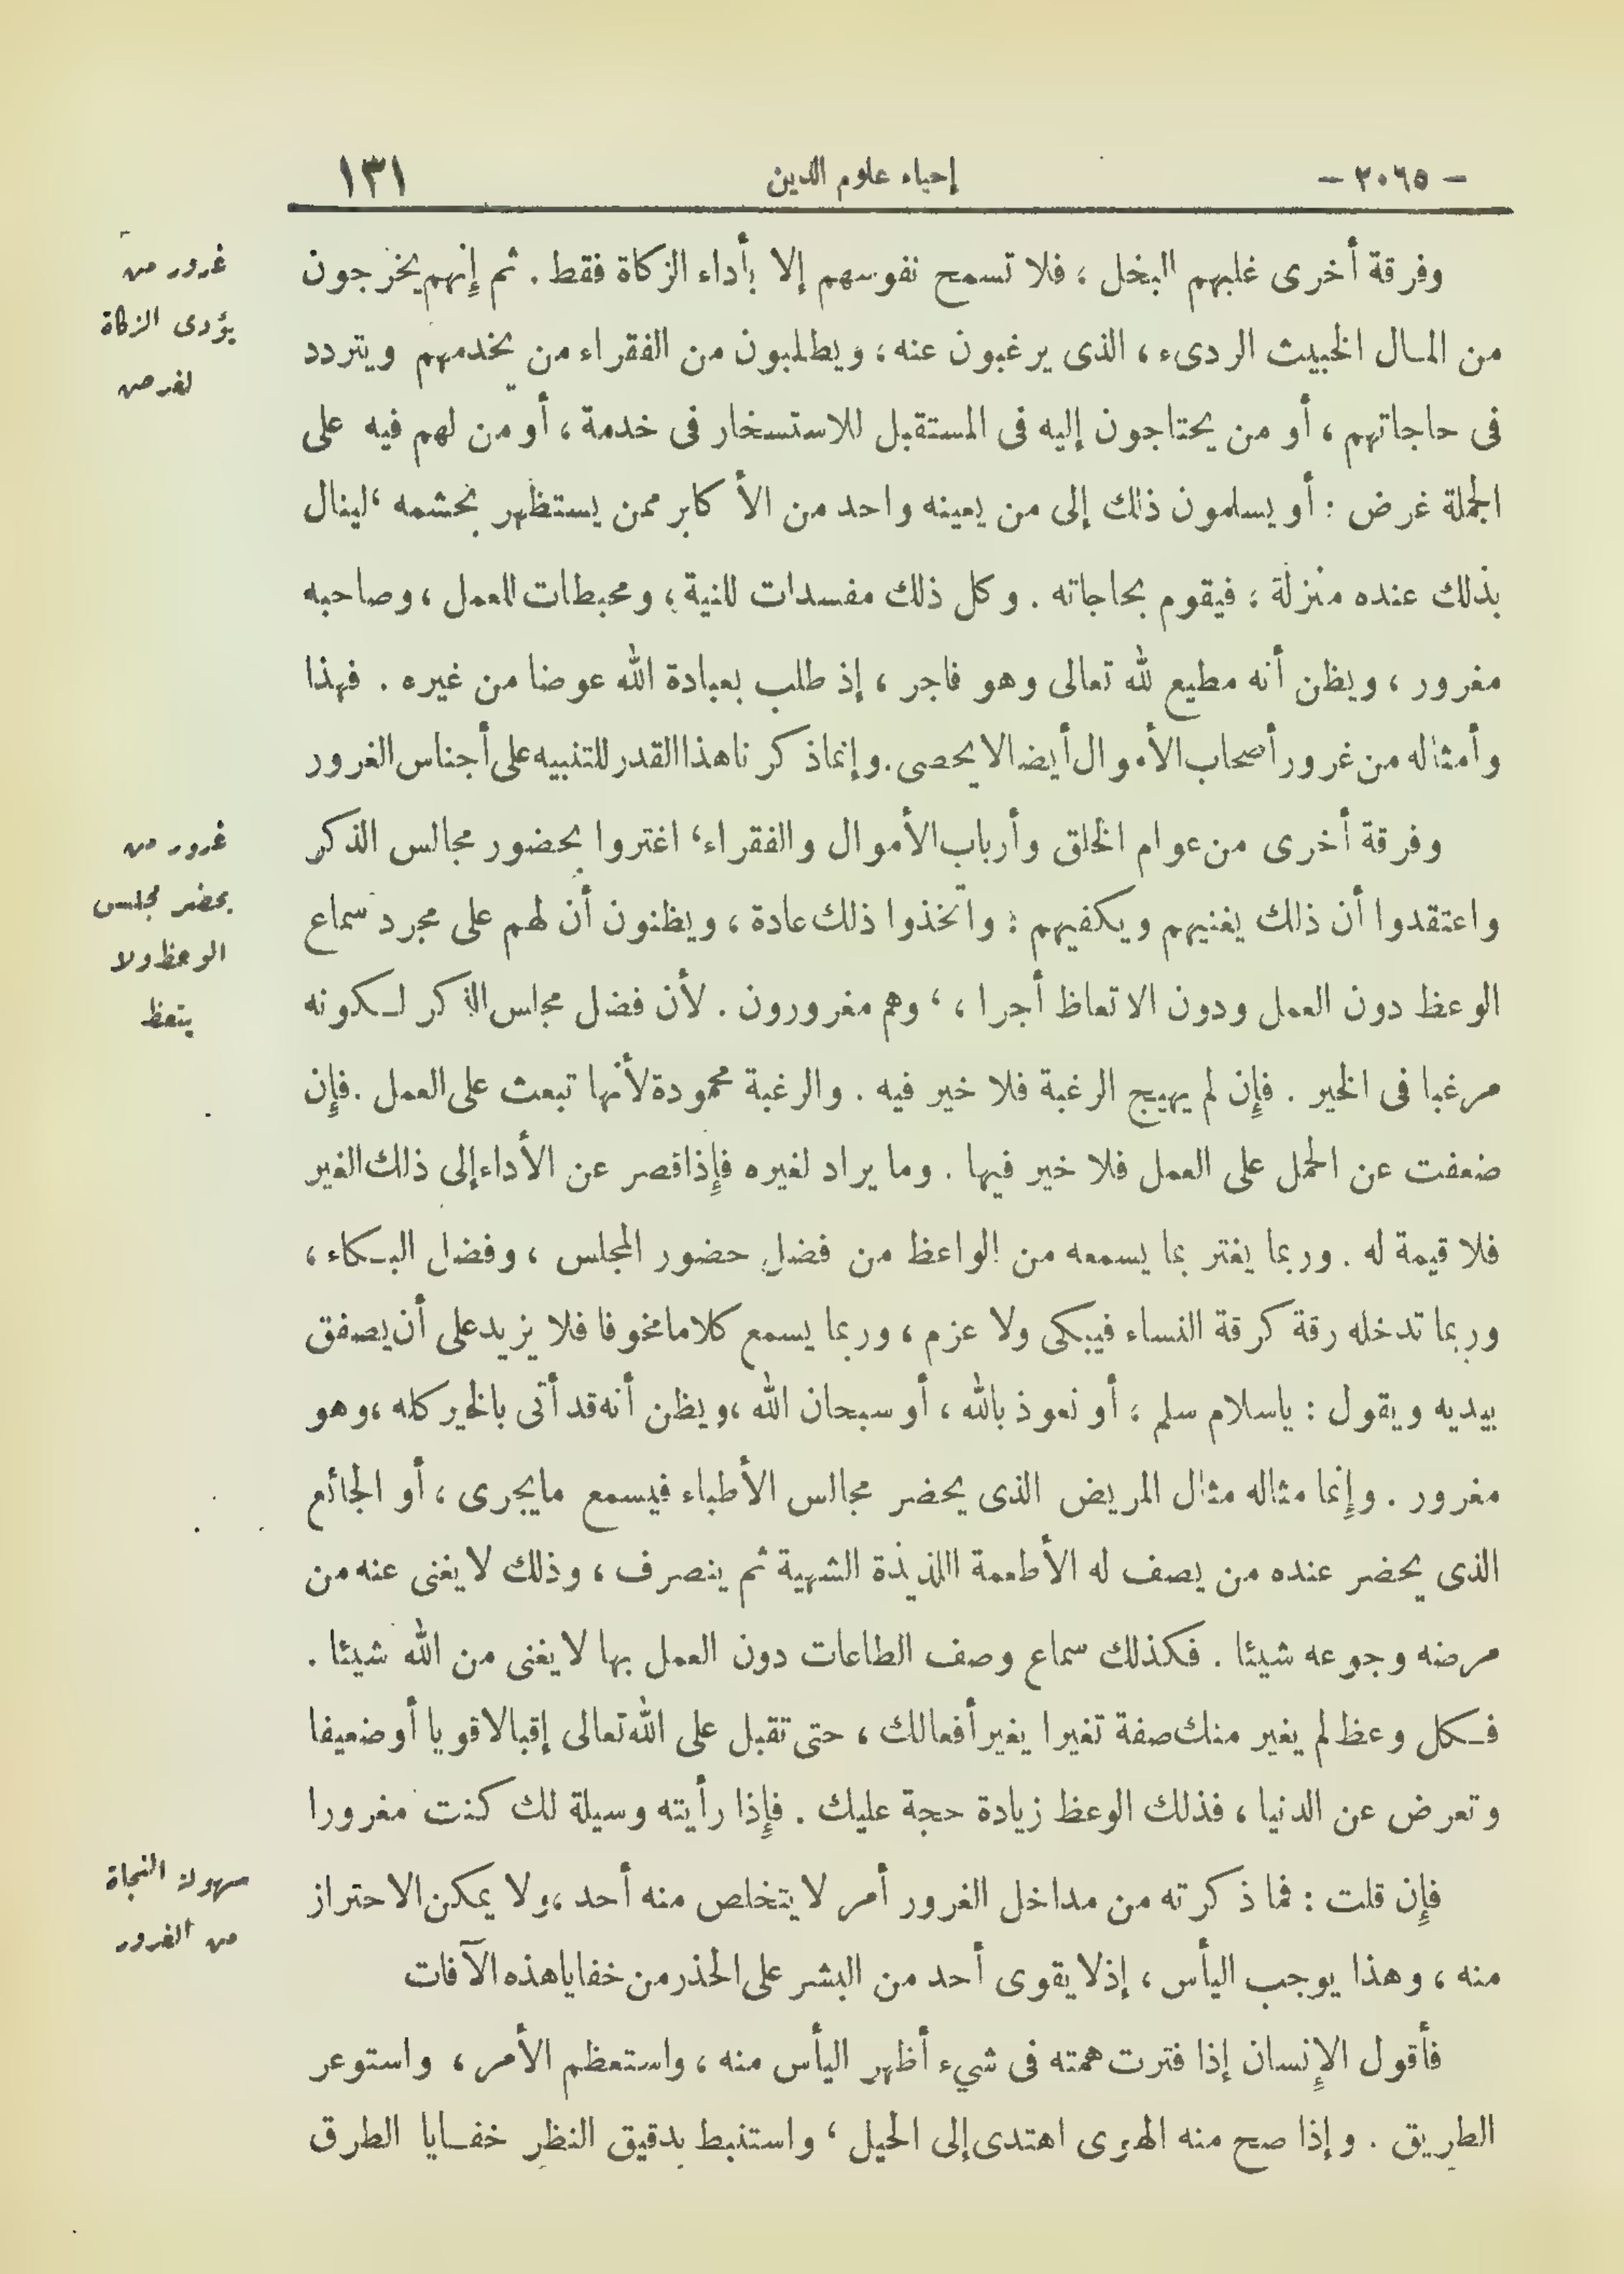 - ٢٠٦٥ - إحياء علوم الدين ١٣١
وفرقة أخرى غلبهم البخل ، فلا تسمح نفوسهم إلا بأداء الزكاة فقط . ثم إنهم يخرجون
من المال الخبيث الردىء ، الذى يرغبون عنه ، ويطلبون من الفقراء من يخدمهم ويتردد
فى حاجاتهم ، أو من يحتاجون إليه فى المستقبل للاستسخار فى خدمة ، أو من لهم فيه على
الجملة غرض : أو يسلمون ذلك إلى من يعينه واحد من الأكابر ممن يستظهر بحشمه ، لينال
بذلك عنده منزلة ، فيقوم بحاجاته . وكل ذلك مفسدات للنية ، ومحبطات للعمل ، وصاحبه
مغرور ، ويظن أنه مطيع لله تعالى وهو فاجر ، إذ طلب بعبادة الله عوضا من غيره . فهذا
وأمثاله من غرور أصحاب الأموال أيضا لا يحصى . وإنما ذكرنا هذا القدر للتنبيه على أجناس الغرور
وفرقة أخرى من عوام الخلق وأرباب الأموال والفقراء ، اغتروا بحضور مجالس الذكر
واعتقدوا أن ذلك يغنيهم ويكفيهم : واتخذوا ذلك عادة ، ويظنون أن لهم على مجرد سماع
الوعظ دون العمل ودون الاتعاظ أجرا ، ، وهم مغرورون . لأن فضل مجلس الذكر لكونه
مرغبا فى الخير . فإن لم يهيج الرغبة فلا خير فيه . والرغبة محمودة لأنها تبعث على العمل . فإن
ضعفت عن الحمل على العمل فلا خير فيها . وما يراد لغيره فإذا قصر عن الأداء إلى ذلك الغير
فلا قيمة له . وربما يغتر بما يسمعه من الواعظ من فضل حضور المجلس ، وفضل البكاء ،
وربما تدخله رقة كرقة النساء فيبكى ولا عزم ، وربما يسمع كلاما مخوفا فلا يزيد على أن يصفق
بيديه ويقول : ياسلام سلم ، أو نعوذ بالله ، أو سبحان الله ، ويظن أنه قد أتى بالخير كله ، وهو
مغرور . وإنما مثاله مثال المريض الذى يحضر مجالس الأطباء فيسمع مايجرى ، أو الجائع
الذى يحضر عنده من يصف له الأطعمة اللذيذة الشهية ثم ينصرف ، وذلك لا يغنى عنه من
مرضه وجوعه شيئا . فكذلك سماع وصف الطاعات دون العمل بها لا يغنى من الله شيئا .
فكل وعظ لم يغير منك صفة تغيرا يغير أفعالك ، حتى تقبل على الله تعالى إقبالا قويا أو ضعيفا
وتعرض عن الدنيا ، فذلك الوعظ زيادة حجة عليك . فإذا رأيته وسيلة لك كنت مغرورا
فإن قلت : فما ذكرته من مداخل الغرور أمر لا يتخلص منه أحد ، ولا يمكن الاحتراز
منه ، وهذا يوجب اليأس ، إذ لا يقوى أحد من البشر على الحذر من خفايا هذه الآفات
فأقول الإنسان إذا فترت همته فى شيء أظهر اليأس منه ، واستعظم الأمر ، واستوعر
الطريق . وإذا صح منه الهوى اهتدى إلى الحيل ، واستنبط بدقيق النظر خفايا الطرق
غرور من
يؤدى الزكاة
لغرض
غرور من
يحضر مجلس
الوعظ ولا
يتعظ
سهولة النجاة
من الغرور